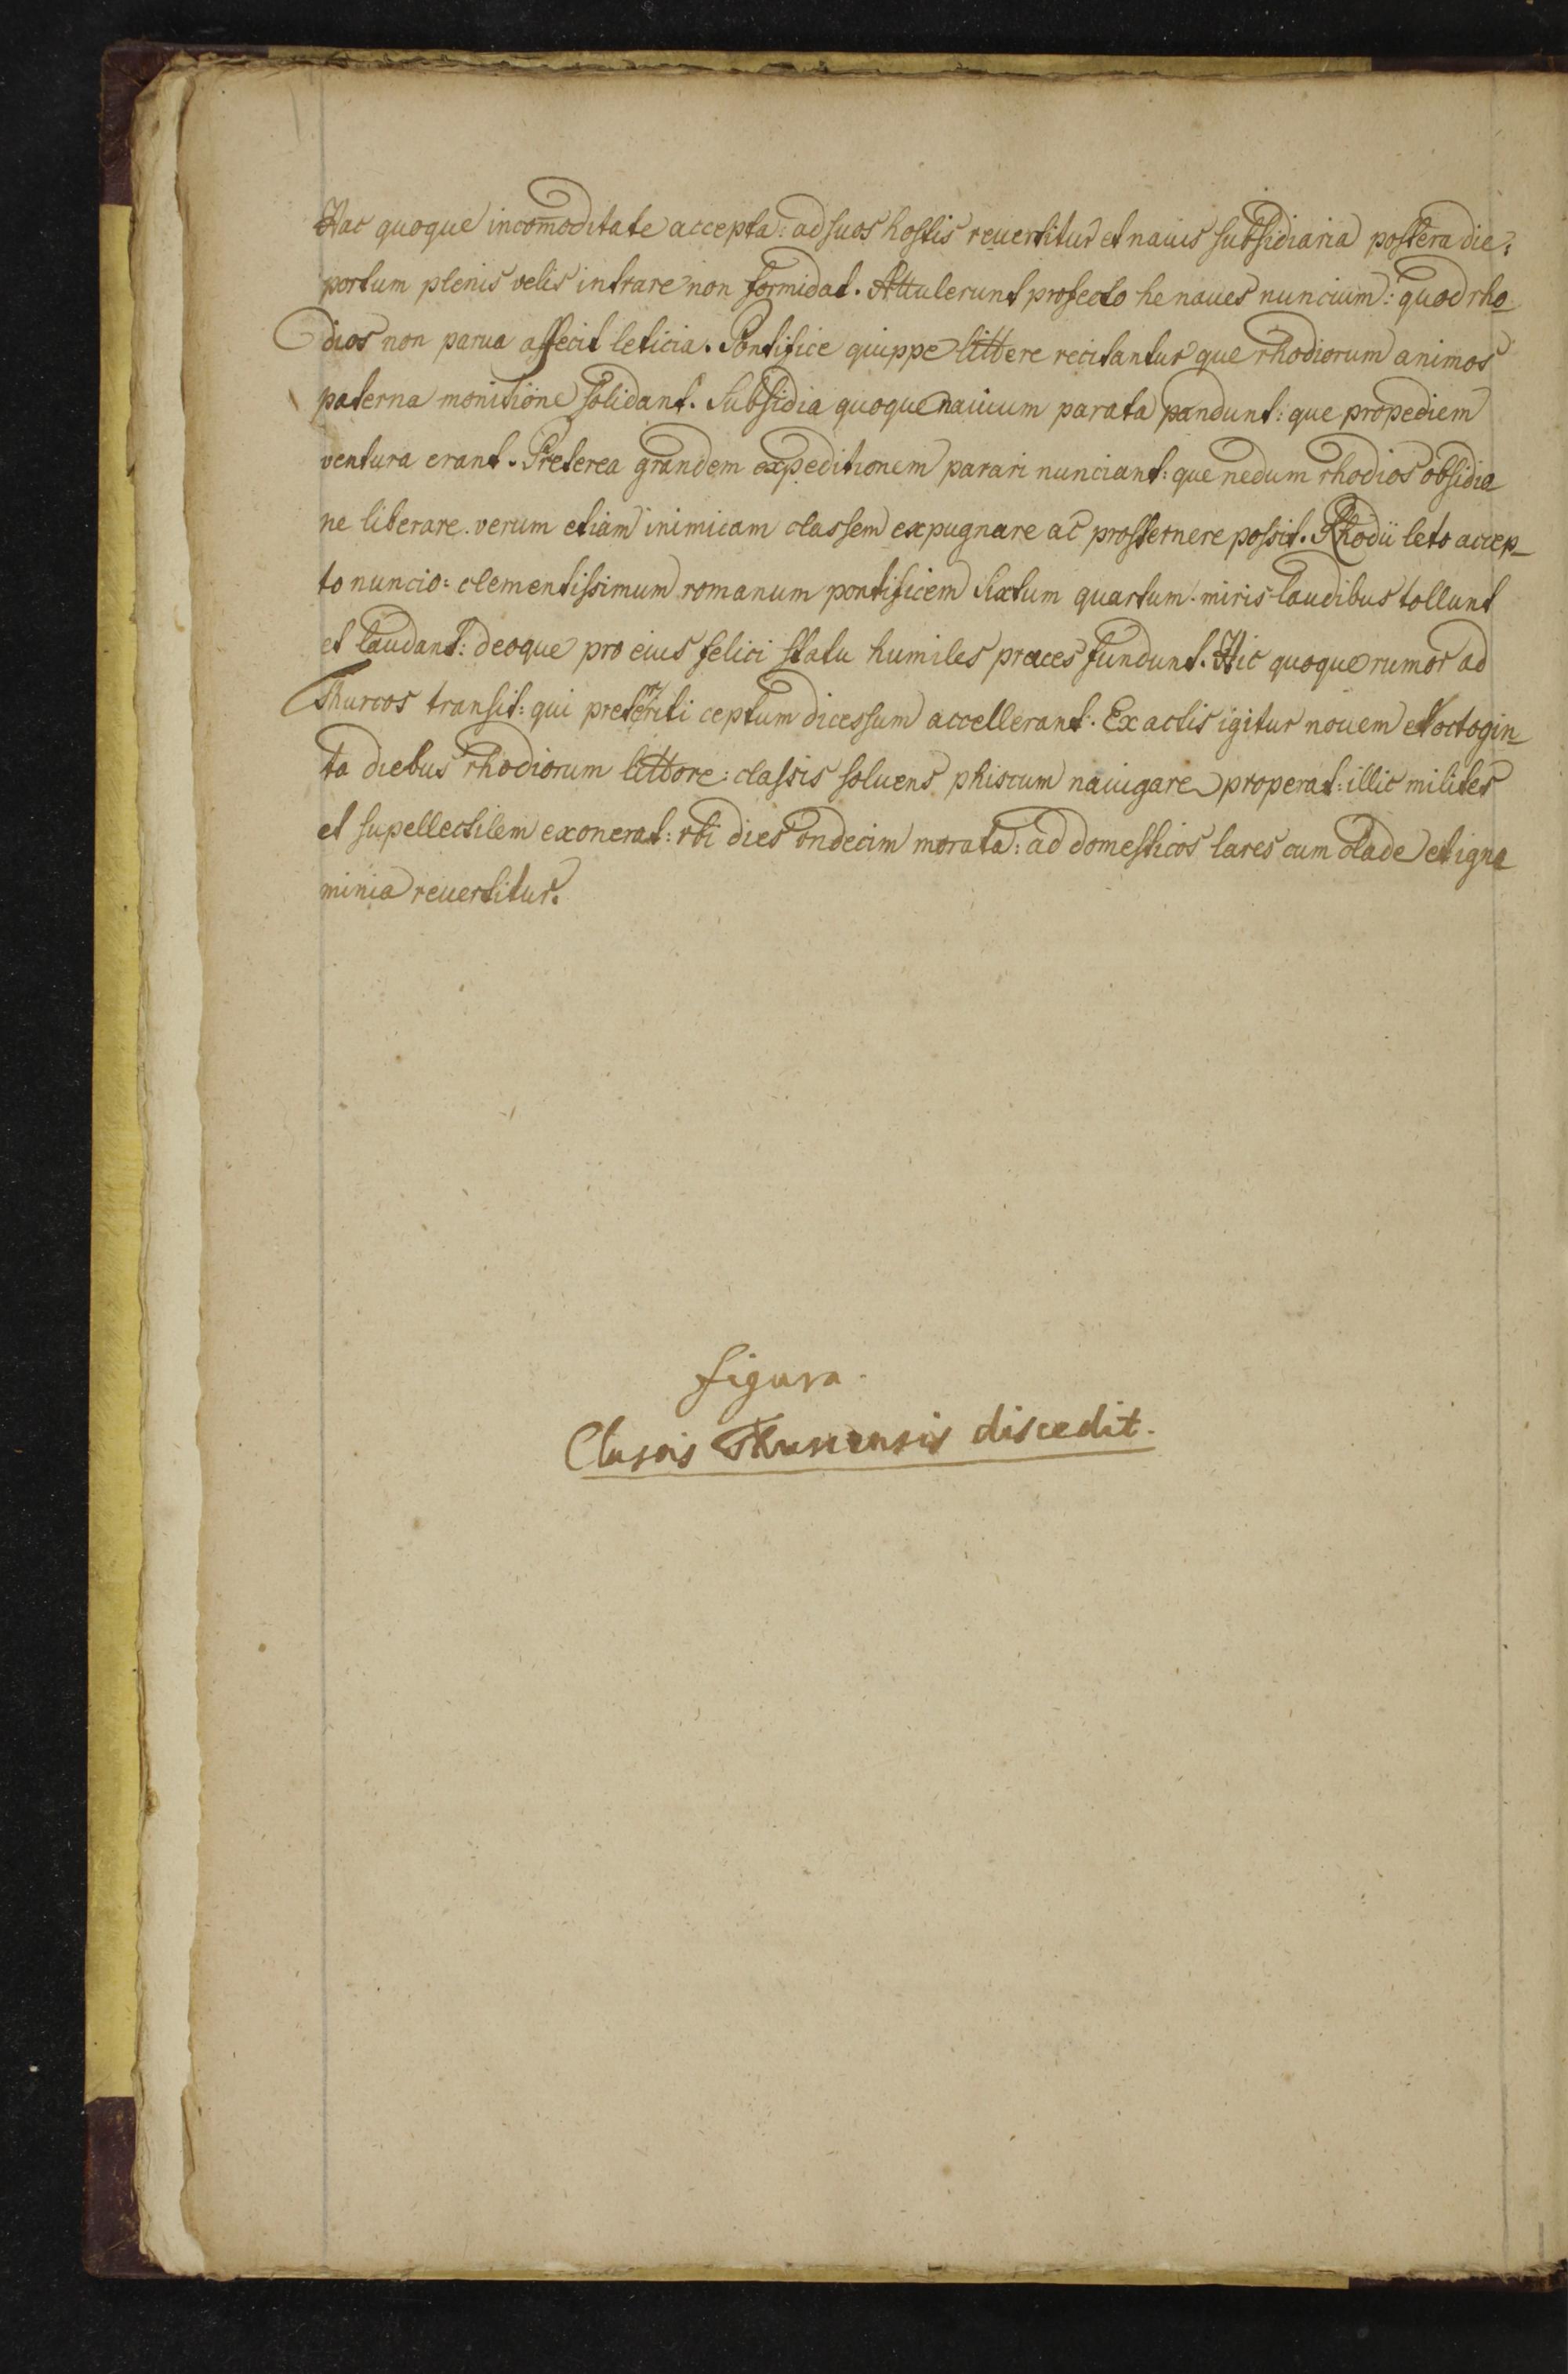 Hac quoque incom̄oditate accepta: ad suos hostis reuertitur et nauis subsidiaria postera die:
portum plenis velis intrare non formidat. Attulerunt profecto he naues nuncium: quod rho
dios non parua affecit leticia. Pontifice quippe littere recitantur que rhodiorum animos
paterna monitione solidant. Subsidia quoque nauium parata pandunt: que propediem
ventura erant. Preterea grandem expeditionem parari nunciant: que nedum rhodios obsidio
ne liberare. verum etiam inimicam classem expugnare ac prosternere possit. Rhodii leto accep_
to nuncio: clementissimum romanum pontificem Sixtum quartum. miris laudibus tollunt
et laudant: deoque pro eius felici statu humiles praeces fundunt. Hic quoque rumor ad
Thurcos transit: qui preterriti ceptum dicessum accellerant. Ex actis igitur nouem et octogin_
ta diebus rhodiorum littore: classis soluens phiscum nauigare properat: illic milites
et supellectilem exonerat: vbi dies ondecim morata: ad domesticos lares cum clade et igno
minia reuertitur.
figura.
Classis Thurcensis discedit.